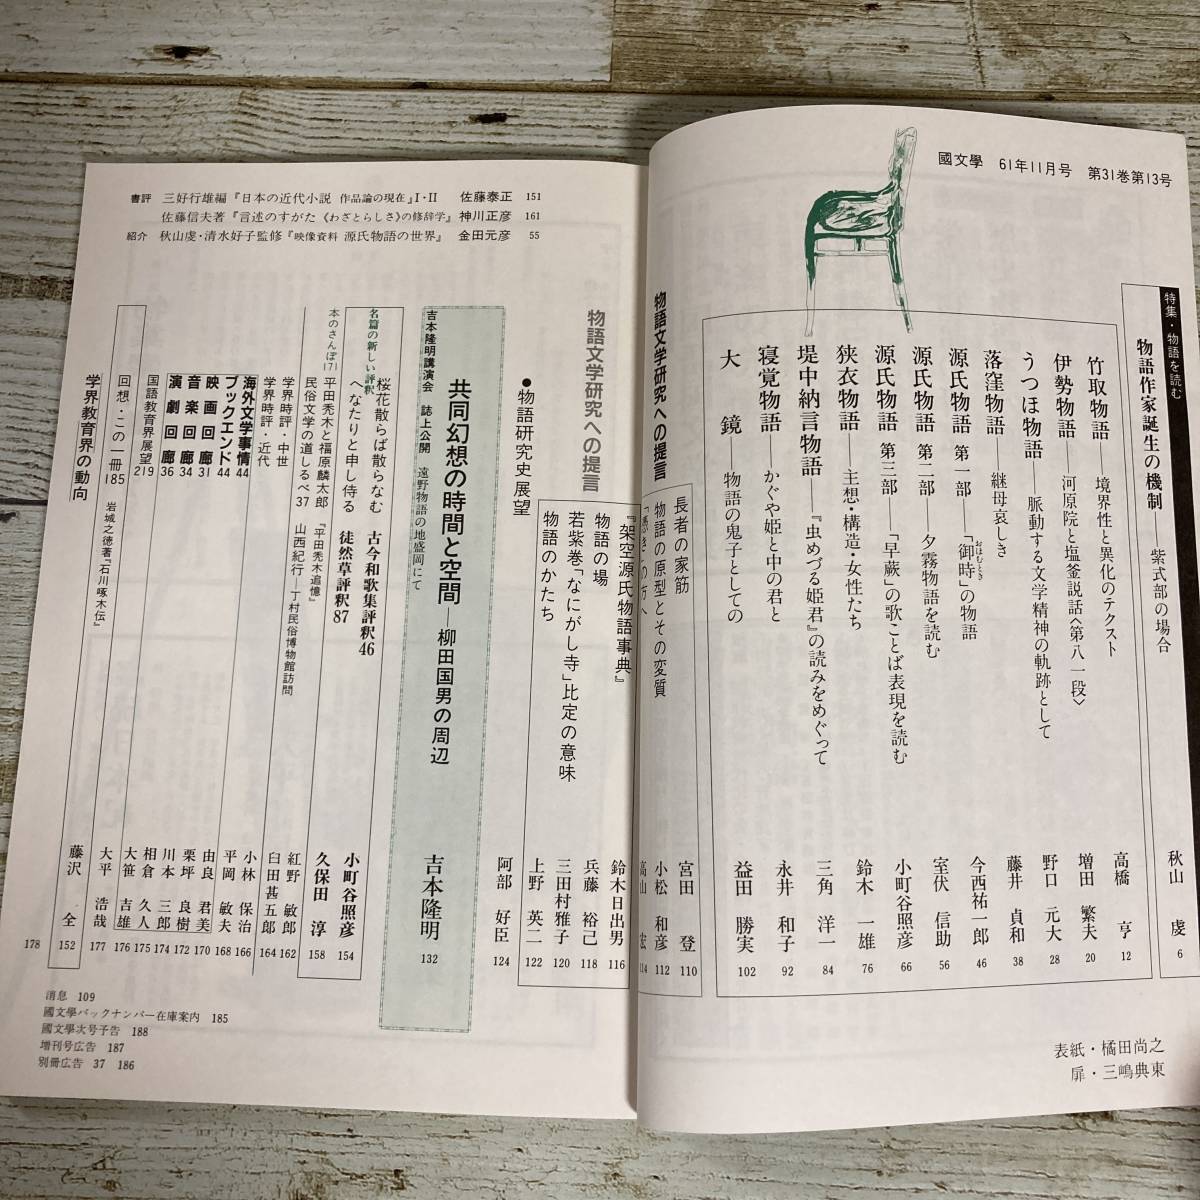 國文學 61年11月号 第31巻第13号
特集・物語を読む
物語作家誕生の機制 紫式部の場合 秋山 虔 6
竹取物語──境界性と異化のテクスト 高橋 亨 12
伊勢物語──河原院と塩釜説話〈第八一段〉 増田 繁夫 20
うつほ物語──脈動する文学精神の軌跡として 野口 元大 28
落窪物語──継母哀しき 藤井 貞和 38
源氏物語 第一部──「御時」の物語 今西祐一郎 46
おほむとき
源氏物語 第二部──夕霧物語を読む 室伏 信助 56
源氏物語 第三部──「早蕨」の歌ことば表現を読む 小町谷照彦 66
狭衣物語──主想・構造・女性たち 鈴木 一雄 76
堤中納言物語──『虫めづる姫君』の読みをめぐって 三角 洋一 84
寝覚物語──かぐや姫と中の君と 永井 和子 92
大鏡──物語の鬼子としての 益田 勝実 102
物語文学研究への提言
長者の家筋 宮田 登 110
物語の原型とその変質 小松 和彦 112
「憑き」の方へ 高山 宏 114
表紙・橘田尚之
扉・三嶋典東
書評 三好行雄編『日本の近代小説 作品論の現在』I・II 佐藤泰正 151
佐藤信夫著『言述のすがた《わざとらしさ》の修辞学』 神川正彦 161
紹介 秋山虔・清水好子監修『映像資料 源氏物語の世界』 金田元彦 55
物語文学研究への提言
『架空源氏物語事典』 鈴木日出男 116
物語の場 兵藤 裕己 118
若紫巻「なにがし寺」比定の意味 三田村雅子 120
物語のかたち 上野 英二 122
●物語研究史展望 阿部 好臣 124
吉本隆明講演会 誌上公開 遠野物語の地盛岡にて
共同幻想の時間と空間──柳田国男の周辺 吉本隆明 132
名篇の新しい評釈
桜花散らば散らなむ 古今和歌集評釈46 小町谷照彦 154
へなたりと申し侍る 徒然草評釈87 久保田 淳 158
本のさんぽ171 平田禿木と福原麟太郎 『平田禿木追憶』 紅野 敏郎 162
民俗文学の道しるべ37 山西紀行──丁村民俗博物館訪問 臼田甚五郎 164
学界時評・中世 小林 保治 166
学界時評・近代 平岡 敏夫 168
海外文学事情44 由良 君美 170
ブックエンド44 栗坪 良樹 172
映画回廊31 川本 三郎 174
音楽回廊34 相倉 久人 175
演劇回廊36 大笹 吉雄 176
国語教育界展望219 大平 浩哉 177
回想・この一冊185 岩城之徳著『石川啄木伝』 藤沢 全 152
学界教育界の動向 178
消息 109
國文學バックナンバー在庫案内 185
國文學次号予告 188
増刊号広告 187
別冊広告 37 186